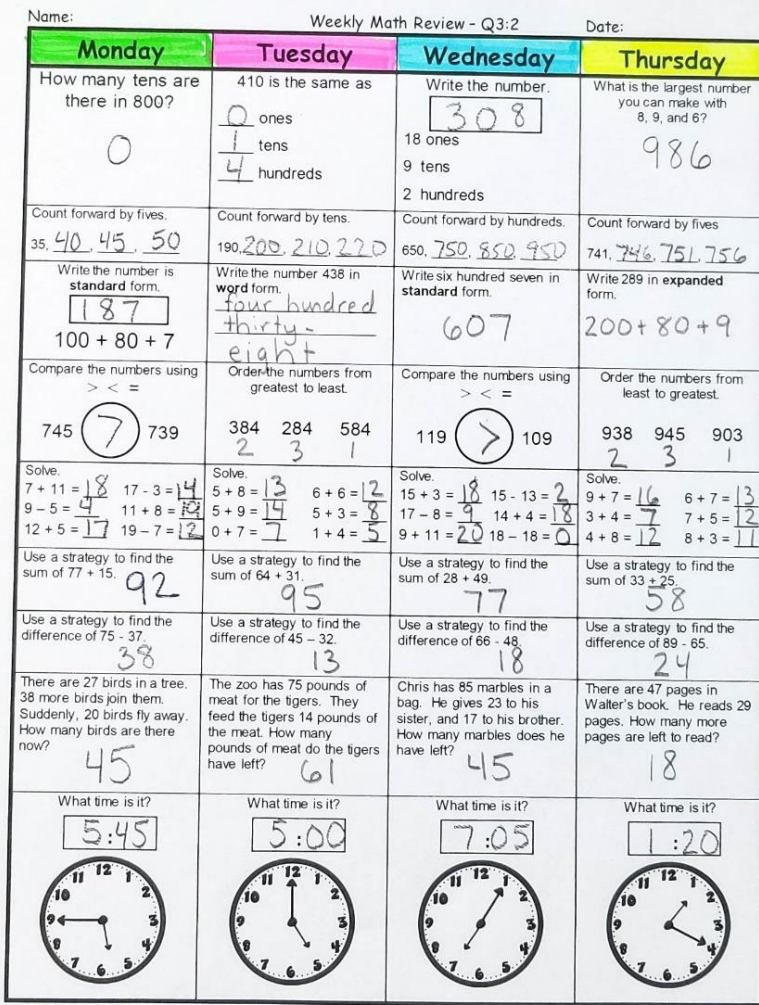 Name:
Weekly Math Review - Q3:2
Date:
Monday
Tuesday
Wednesday
Thursday
How many tens are
there in 800?
0
410 is the same as
0 ones
1 tens
4 hundreds
Write the number.
308
18 ones
9 tens
2 hundreds
What is the largest number
you can make with
8, 9, and 6?
986
Count forward by fives.
35, 40, 45, 50
Count forward by tens.
190, 200, 210, 220
Count forward by hundreds.
650, 750, 850, 950
Count forward by fives
741, 746, 751, 756
Write the number is
standard form.
187
100 + 80 + 7
Write the number 438 in
word form.
four hundred
thirty-
eight
Write six hundred seven in
standard form.
607
Write 289 in expanded
form.
200+ 80 + 9
Compare the numbers using
> < =
745 > 739
Order the numbers from
greatest to least.
384 284 584
2 3 1
Compare the numbers using
> < =
119 > 109
Order the numbers from
least to greatest.
938 945 903
2 3 1
Solve.
7 + 11 = 18 17 - 3 = 14
9 – 5 = 4 11 + 8 = 19
12 + 5 = 17 19 – 7 = 12
Solve.
5 + 8 = 13 6 + 6 = 12
5 + 9 = 14 5 + 3 = 8
0 + 7 = 7 1 + 4 = 5
Solve.
15 + 3 = 18 15 - 13 = 2
17 – 8 = 9 14 + 4 = 18
9 + 11 = 20 18 – 18 = 0
Solve.
9 + 7 = 16 6 + 7 = 13
3 + 4 = 7 7 + 5 = 12
4 + 8 = 12 8 + 3 = 11
Use a strategy to find the
sum of 77 + 15. 92
Use a strategy to find the
sum of 64 + 31.
95
Use a strategy to find the
sum of 28 + 49.
77
Use a strategy to find the
sum of 33 + 25.
58
Use a strategy to find the
difference of 75 - 37.
38
Use a strategy to find the
difference of 45 – 32.
13
Use a strategy to find the
difference of 66 - 48.
18
Use a strategy to find the
difference of 89 - 65.
24
There are 27 birds in a tree.
38 more birds join them.
Suddenly, 20 birds fly away.
How many birds are there
now?
45
The zoo has 75 pounds of
meat for the tigers. They
feed the tigers 14 pounds of
the meat. How many
pounds of meat do the tigers
have left? 61
Chris has 85 marbles in a
bag. He gives 23 to his
sister, and 17 to his brother.
How many marbles does he
have left? 45
There are 47 pages in
Walter's book. He reads 29
pages. How many more
pages are left to read?
18
What time is it?
5:45
12 1 2 3 4 5 6 7 8 9 10 11
What time is it?
5:00
12 1 2 3 4 5 6 7 8 9 10 11
What time is it?
7:05
12 1 2 3 4 5 6 7 8 9 10 11
What time is it?
1:20
12 1 2 3 4 5 6 7 8 9 10 11